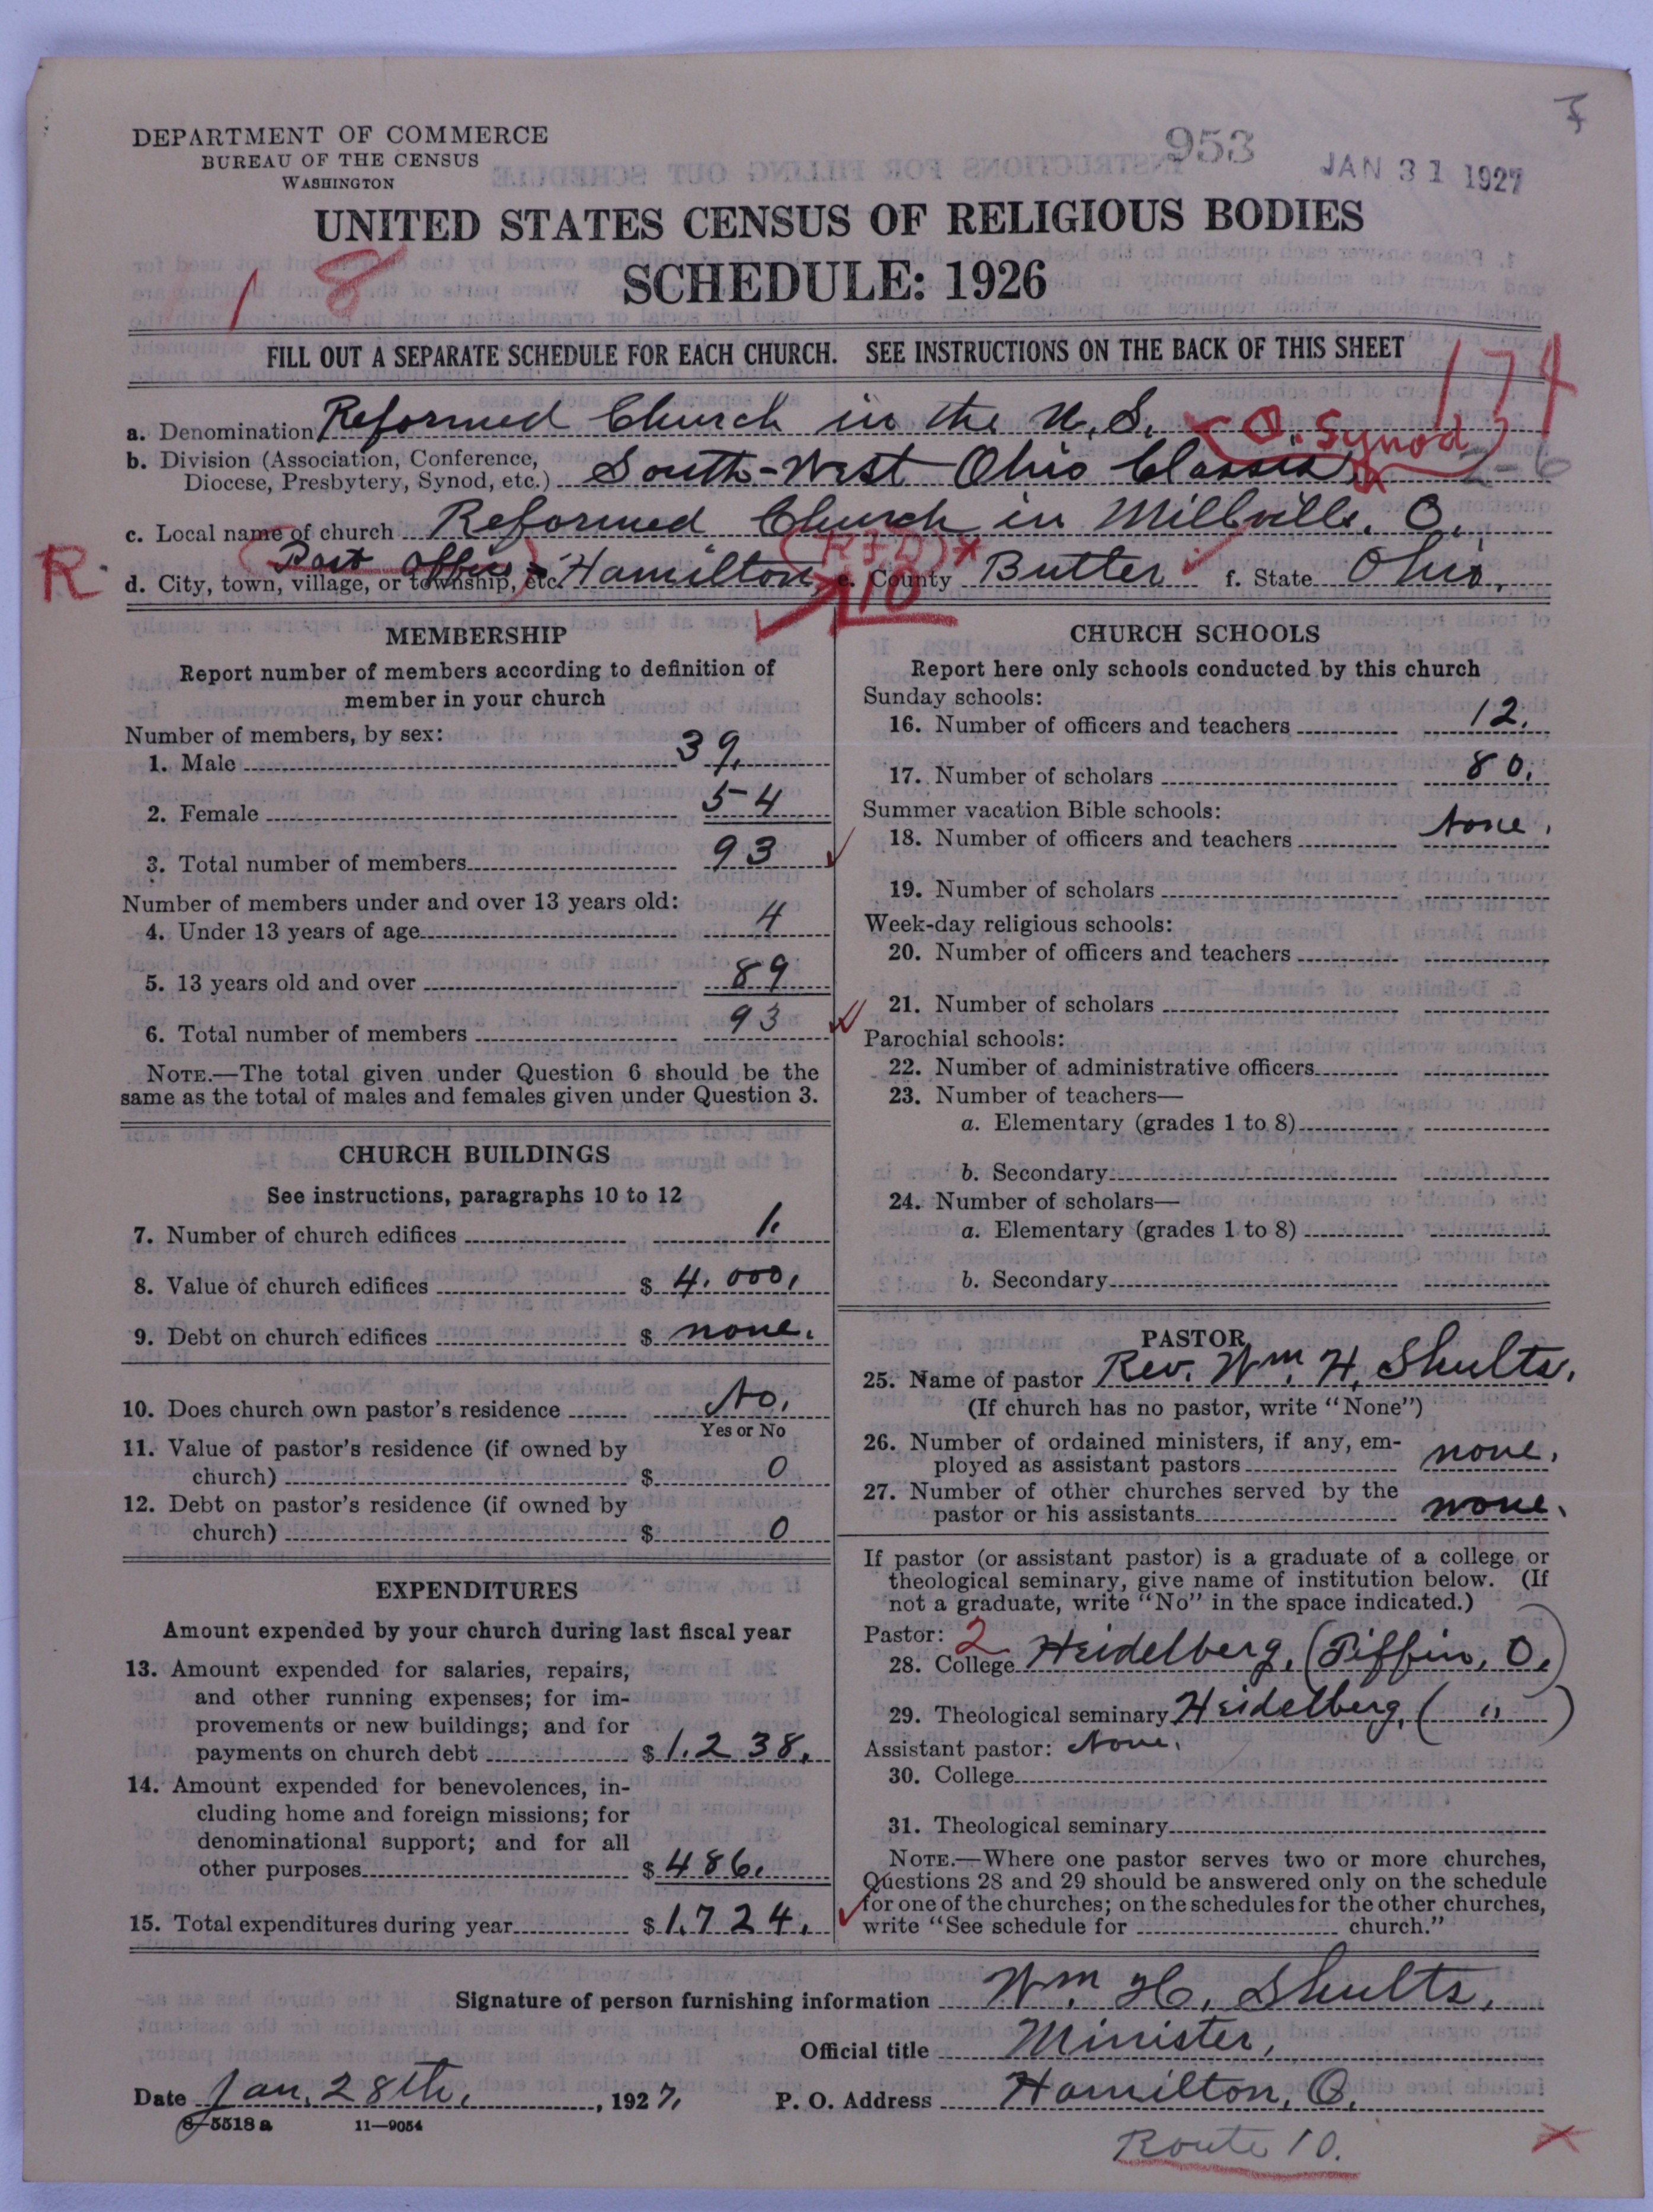 DEPARTMENT OF COMMERCE
BUREAU OF THE CENSUS
WASHINGTON
953
JAN 31 1927
UNITED STATES CENSUS OF RELIGIOUS BODIES
SCHEDULE: 1926
1 8
FILL OUT A SEPARATE SCHEDULE FOR EACH CHURCH. SEE INSTRUCTIONS ON THE BACK OF THIS SHEET
174
a. Denomination Reformed Church in the U. S. (O. Synod)
b. Division (Association, Conference, Diocese, Presbytery, Synod, etc.) South-West Ohio Classis 2-6
c. Local name of church Reformed Church in Millville, O.
R. (Post Office)
d. City, town, village, or township, etc. Hamilton, (RFD)* 10 e. County Butler f. State Ohio.
MEMBERSHIP
Report number of members according to definition of
member in your church
Number of members, by sex:
1. Male 39.
2. Female 54
3. Total number of members 93
Number of members under and over 13 years old:
4. Under 13 years of age 4
5. 13 years old and over 89
6. Total number of members 93
NOTE.—The total given under Question 6 should be the
same as the total of males and females given under Question 3.
CHURCH BUILDINGS
See instructions, paragraphs 10 to 12
7. Number of church edifices 1.
8. Value of church edifices $ 4.000.
9. Debt on church edifices $ none.
10. Does church own pastor's residence No.
Yes or No
11. Value of pastor's residence (if owned by
church) $ 0
12. Debt on pastor's residence (if owned by
church) $ 0
EXPENDITURES
Amount expended by your church during last fiscal year
13. Amount expended for salaries, repairs,
and other running expenses; for im-
provements or new buildings; and for
payments on church debt $ 1.238.
14. Amount expended for benevolences, in-
cluding home and foreign missions; for
denominational support; and for all
other purposes $ 486.
15. Total expenditures during year $ 1.724.
CHURCH SCHOOLS
Report here only schools conducted by this church
Sunday schools:
16. Number of officers and teachers 12.
17. Number of scholars 80.
Summer vacation Bible schools:
18. Number of officers and teachers None.
19. Number of scholars
Week-day religious schools:
20. Number of officers and teachers
21. Number of scholars
Parochial schools:
22. Number of administrative officers
23. Number of teachers—
a. Elementary (grades 1 to 8)
b. Secondary
24. Number of scholars—
a. Elementary (grades 1 to 8)
b. Secondary
PASTOR
25. Name of pastor Rev. Wm. H. Shults.
(If church has no pastor, write "None")
26. Number of ordained ministers, if any, em-
ployed as assistant pastors none.
27. Number of other churches served by the
pastor or his assistants none.
If pastor (or assistant pastor) is a graduate of a college or
theological seminary, give name of institution below. (If
not a graduate, write "No" in the space indicated.)
Pastor: 2
28. College Heidelberg, (Tiffin, O.)
29. Theological seminary Heidelberg, ( " )
Assistant pastor: None.
30. College
31. Theological seminary
NOTE.—Where one pastor serves two or more churches,
Questions 28 and 29 should be answered only on the schedule
for one of the churches; on the schedules for the other churches,
write "See schedule for church."
Signature of person furnishing information Wm. H. Shults.
Official title Minister,
Date Jan. 28th., 1927. P. O. Address Hamilton, O.
8-5518 a 11-9054
Route 10.